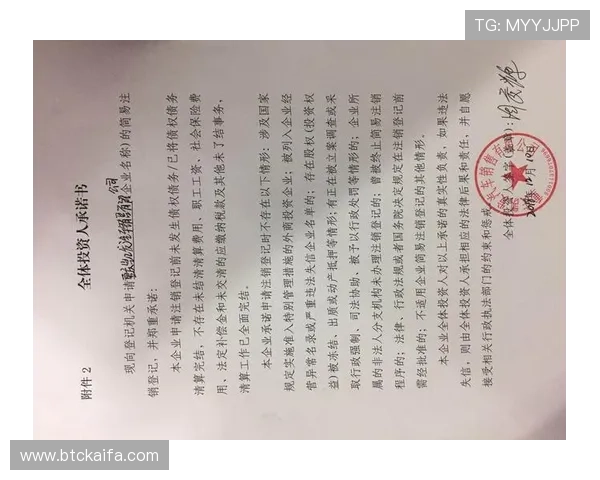 TG: MYYJJPP
附件 2
全体投资人承诺书
现向登记机关申请 公司(企业名称)的简易注
销登记,并郑重承诺:
本企业申请注销登记前未发生债权债务/已将债权债务
清算完结,不存在未结清清算费用、职工工资、社会保险费
用、法定补偿金和未交清的应缴纳税款及其他未了结事务,
清算工作已全面完结。
本企业承诺申请注销登记时不存在以下情形:涉及国家
规定实施准入特别管理措施的外商投资企业;被列入企业经
营异常名录或严重违法失信企业名单的;存在股权(投资权
益)被冻结、出质或动产抵押等情形;有正在被立案调查或采
取行政强制、司法协助、被予以行政处罚等情形的;企业所
属的非法人分支机构未办理注销登记的;曾被终止简易注销
程序的;法律、行政法规或者国务院决定规定在注销登记前
需经批准的;不适用企业简易注销登记的其他情形。
本企业全体投资人对以上承诺的真实性负责,如果违法
失信,则由全体投资人承担相应的法律后果和责任,并自愿
接受相关行政执法部门的约束和惩戒。
全体投资人签字(盖章):
www.btckaifa.com